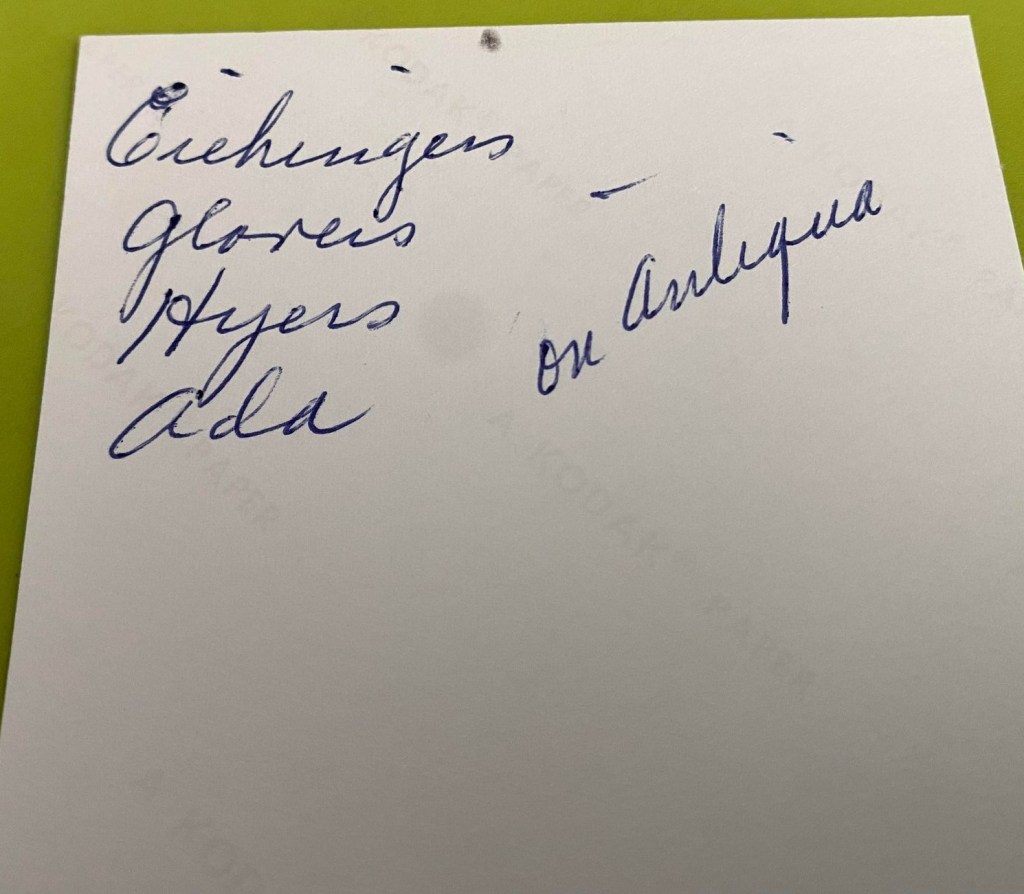 Eichingers
Glovers
Hyers
Ada
on Antigua
KODAK PAPER
A KODAK PAPER